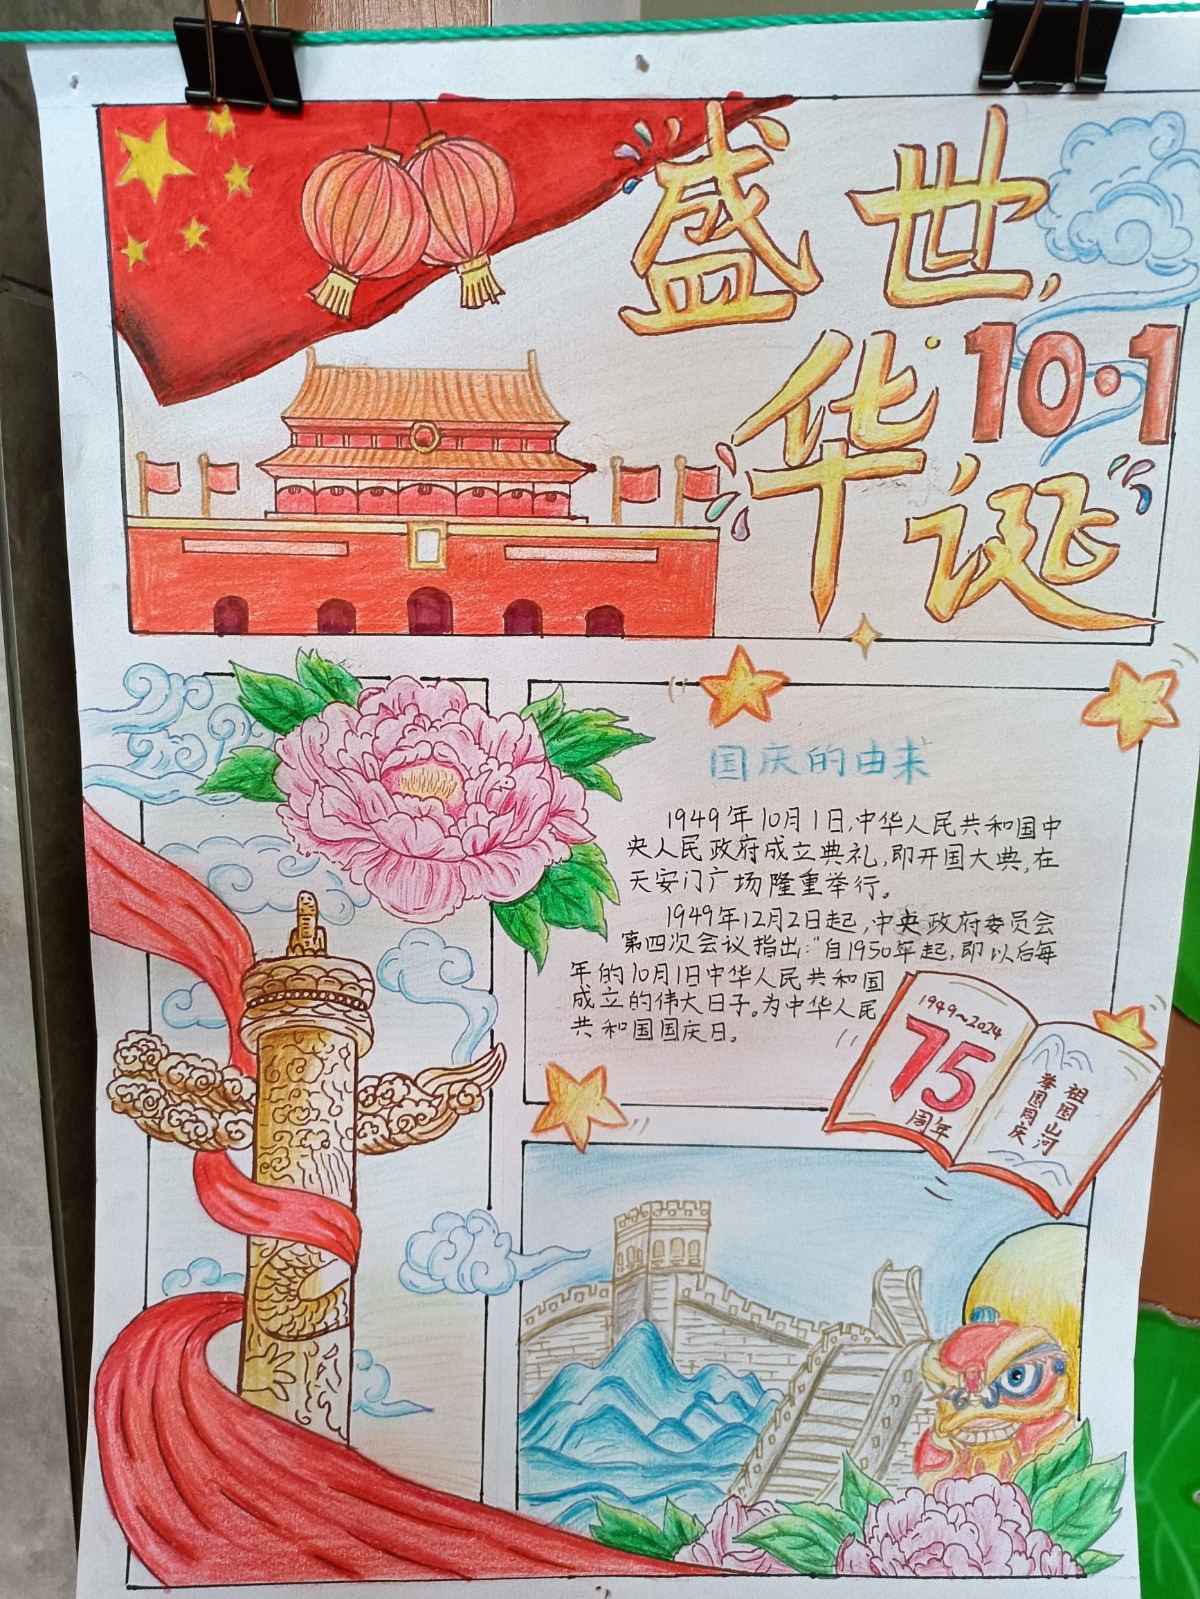 盛世
华诞
10·1
国庆的由来
1949年10月1日,中华人民共和国中
央人民政府成立典礼,即开国大典,在
天安门广场隆重举行。
1949年12月2日起,中央政府委员会
第四次会议指出:"自1950年起,即以后每
年的10月1日中华人民共和国
成立的伟大日子。为中华人民
共和国国庆日。
1949~2024
75
周年
祖国山河
举国同庆